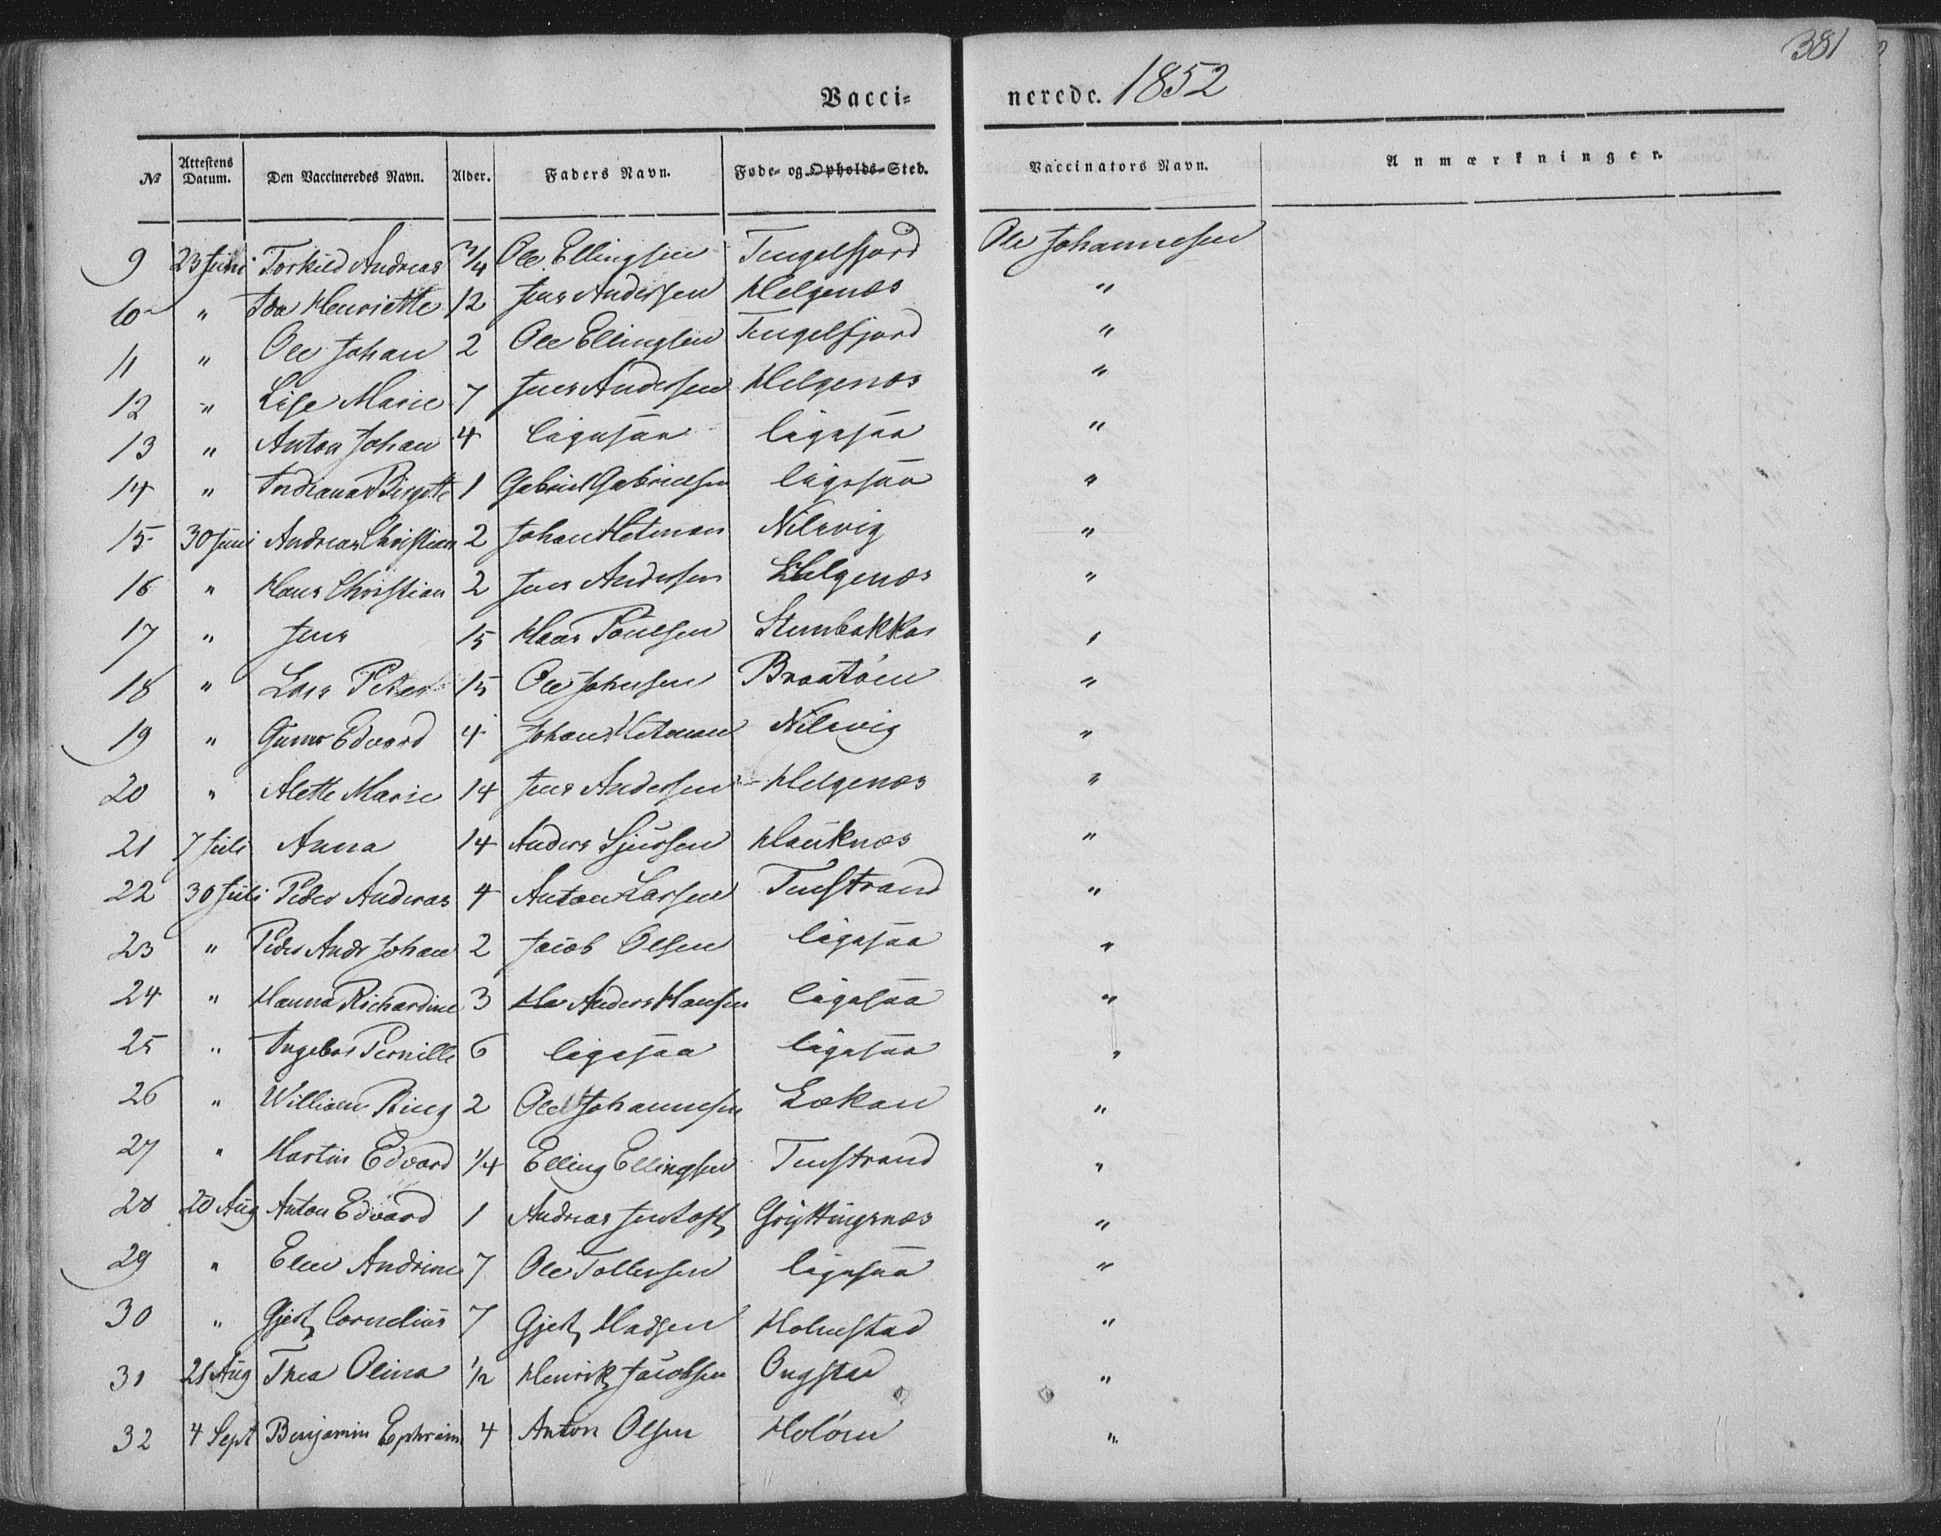 381
Vacci= nerede. 1852
No Attestens Datum. Den Vaccineredes Navn. Alder. Faders Navn. Føde- og Opholds-Sted. Vaccinators Navn. Anmærkninger.
9 23 Juni Torkild Andreas 3/4 Ole Ellingsen Tengelfjord Ole Johannesen
10 " Ida Henriette 12 Jens Andersen Helgenæs "
11 " Ole Johan 2 Ole Ellingsen Tengelfjord "
12 " Lise Marie 7 Jens Andersen Helgenæs "
13 " Anton Johan 4 ligesaa ligesaa "
14 " Birgitte 1 Gabriel Gabrielsen ligesaa "
15 30 Juni Andreas Christian 2 Johan Hetman Nilsvig "
16 " Hans Christian 2 Jens Andersen Helgenæs "
17 " Jens 15 Hans Poulsen Stenbakken "
18 " Lars Peter 15 Ole Johnsen Braatøen "
19 " Edvard 4 Johan Hetman Nilsvig "
20 " Alette Marie 14 Jens Andersen Helgenæs "
21 7 Juli Anna 14 Anders Sjursen Hauknæs "
22 30 Juli Peder Andreas 4 Anton Larsen Tenstrand "
23 " Peder Andr Johan 2 Jacob Olsen ligesaa "
24 " Hanna Richardine 3 Ha Anders Hansen ligesaa "
25 " Ingebor Pernille 6 ligesaa ligesaa "
26 " William Ring 2 Ole Johannesen Lekan "
27 " Martin Edvard 1/4 Elling Ellingsen Tenstrand "
28 20 Aug Anton Edvard 1 Andreas Jentoft Gryttingsnæs "
29 " Elen Andrine 7 Ole Tollevsen ligesaa "
30 " Gjert Cornelius 7 Gjert Madsen Holmstad "
31 21 Aug Thea Olina 1/2 Henrik Jacobsen Ongstad "
32 4 Sept Benjamin Ephraim 4 Anton Olsen Holøen "